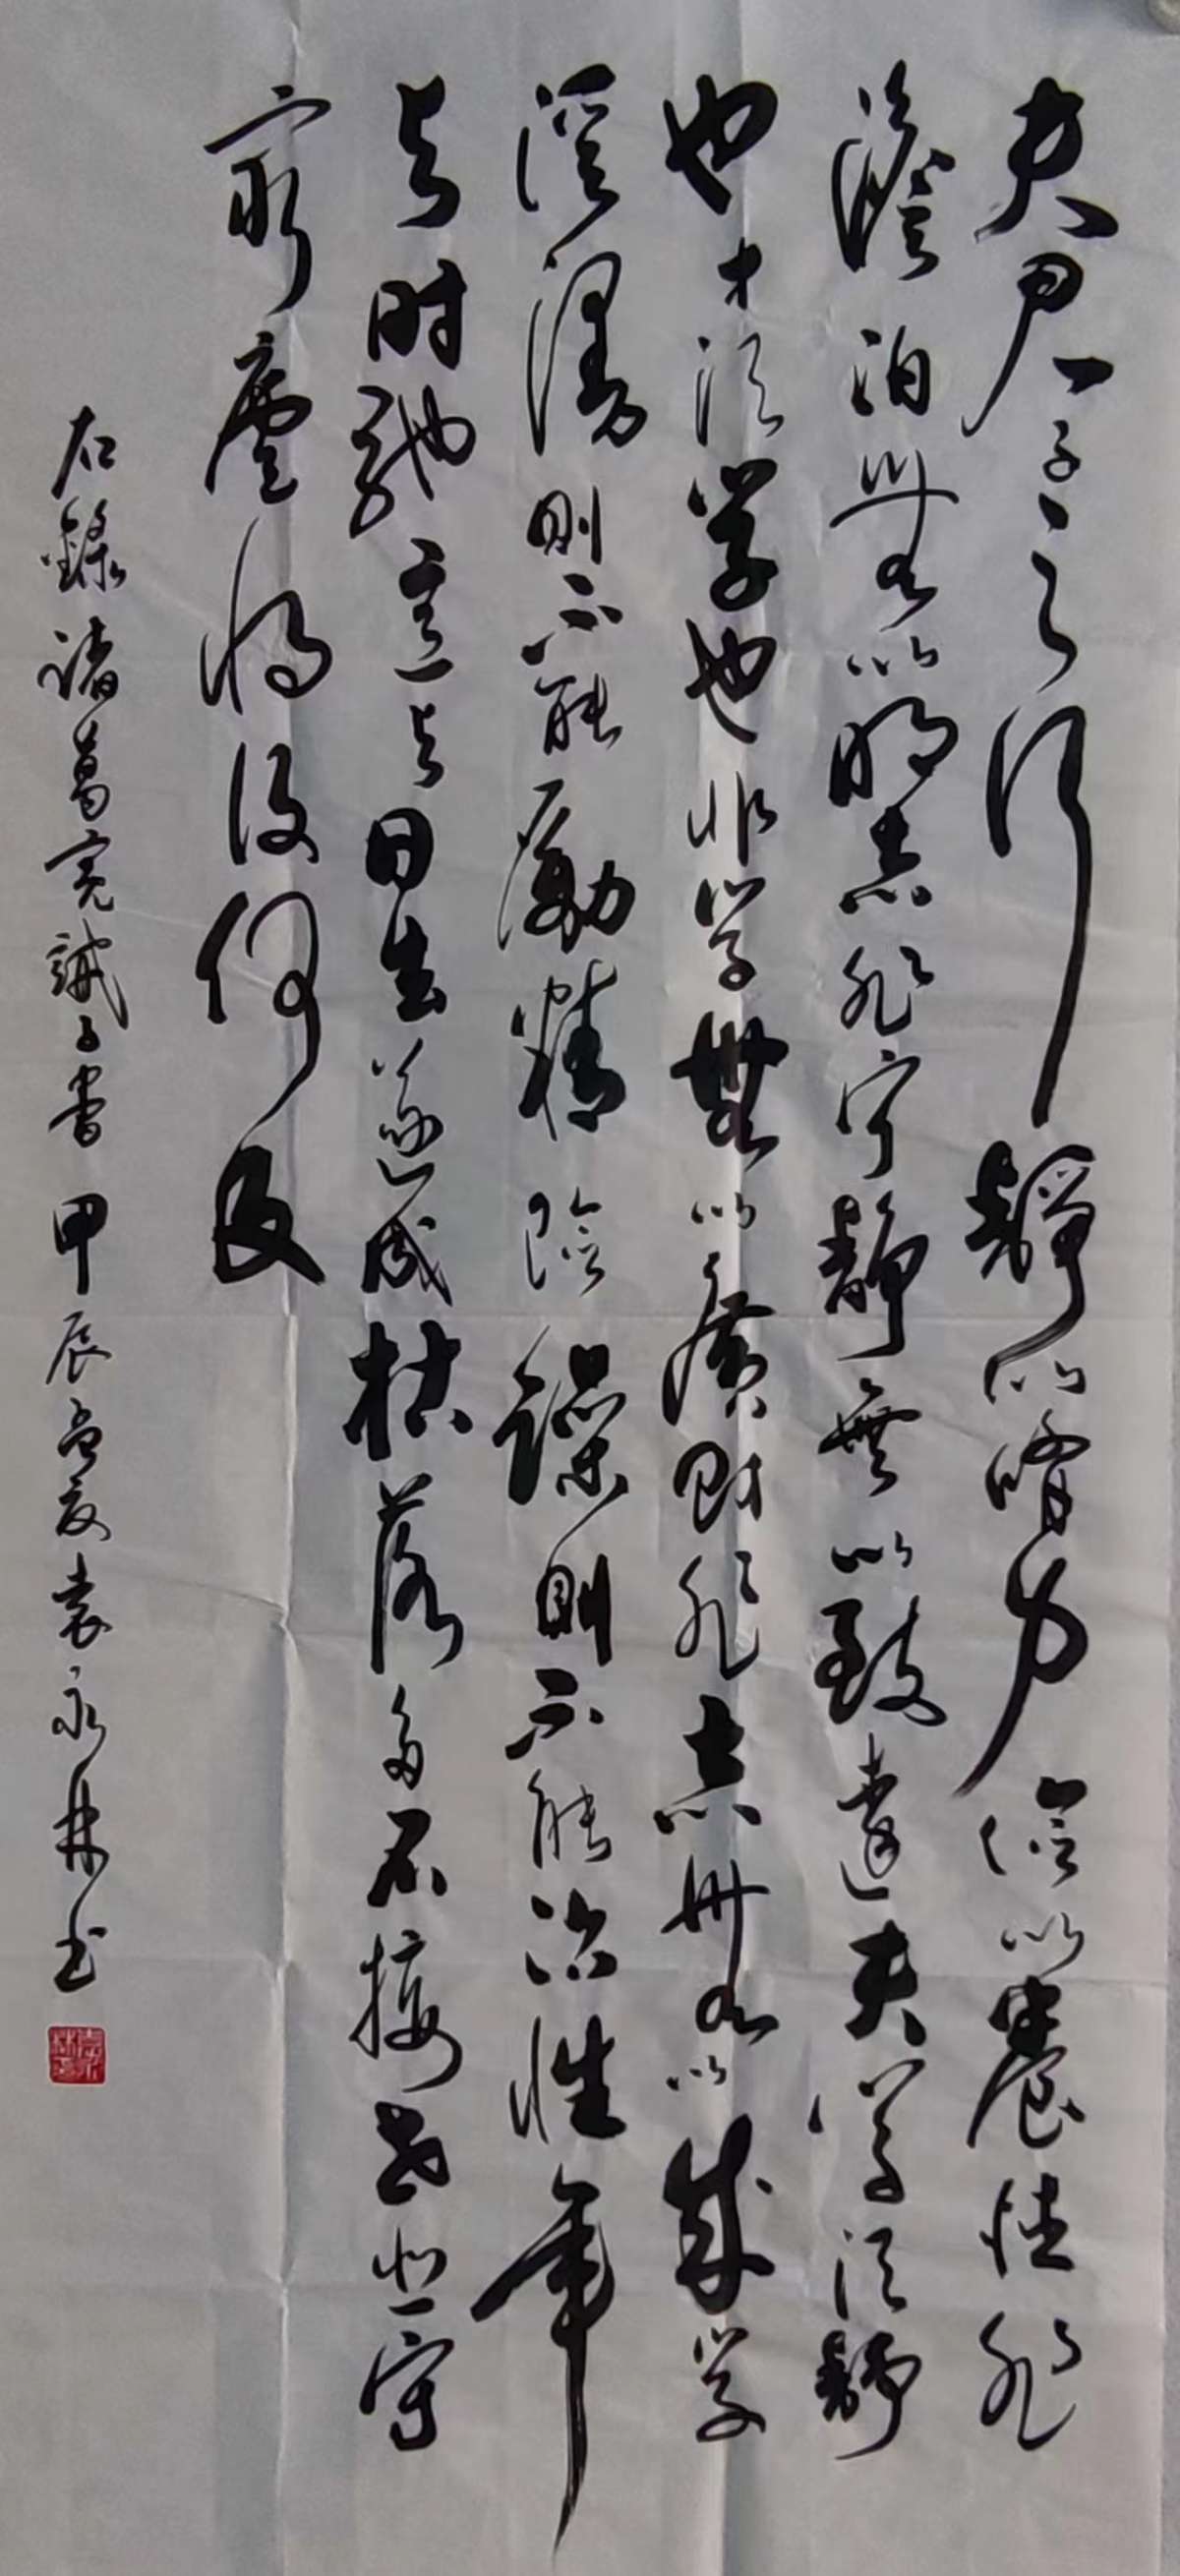 夫君子之行靜以脩身儉以養德非
澹泊無以明志非宁靜無以致遠夫学須靜
也才須学也非学無以廣財非志無以成学
淫漫則不能勵精險躁則不能治性年
与时馳意与日去遂成枯落多不接世悲守
窮廬將復何及
右錄諸葛亮誡子書 甲辰孟夏袁永林书